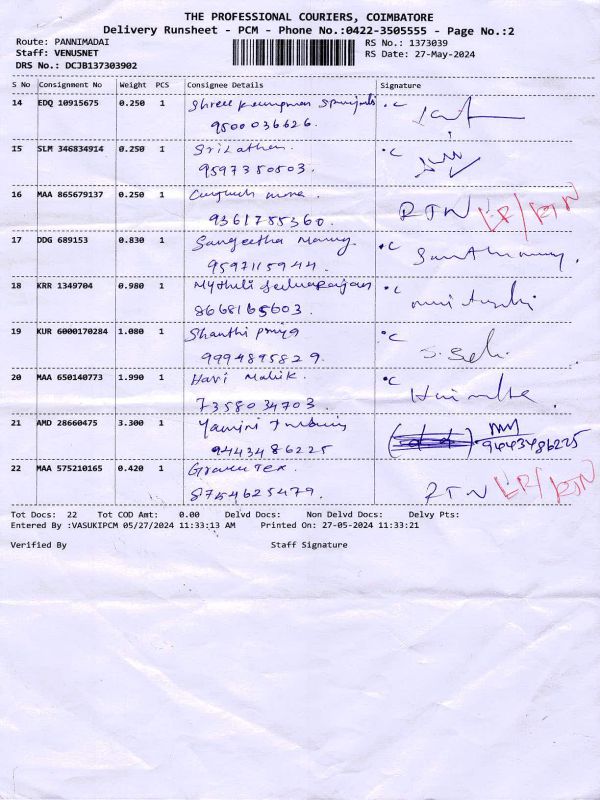 THE PROFESSIONAL COURIERS, COIMBATORE
Delivery Runsheet - PCM - Phone No.:0422-3505555 - Page No.:2
Route: PANNIMADAI RS No.: 1373039
Staff: VENUSNET RS Date: 27-May-2024
DRS No.: DCJB137303902
S No Consignment No Weight PCS Consignee Details Signature
14 EDQ 10915675 0.250 1 Shree °C
9500036626.
15 SLM 346834914 0.250 1 Srilathan °C
9597350503.
16 MAA 865679137 0.250 1 RTN ER/RTN
9361755360.
17 DDG 689153 0.830 1 Sangeetha °C
9597115944.
18 KRR 1349704 0.980 1 Mythili °C
8668165603.
19 KUR 6000170284 1.080 1 Shanthi priya °C
9994895829.
20 MAA 650140773 1.990 1 Hari Malik. °C
7358034703.
21 AMD 28660475 3.300 1 Yamini
9443486225 9443486225
22 MAA 575210165 0.420 1 Tex.
8754625479. RTN ER/RTN
Tot Docs: 22 Tot COD Amt: 0.00 Delvd Docs: Non Delvd Docs: Delvy Pts:
Entered By :VASUKIPCM 05/27/2024 11:33:13 AM Printed On: 27-05-2024 11:33:21
Verified By Staff Signature